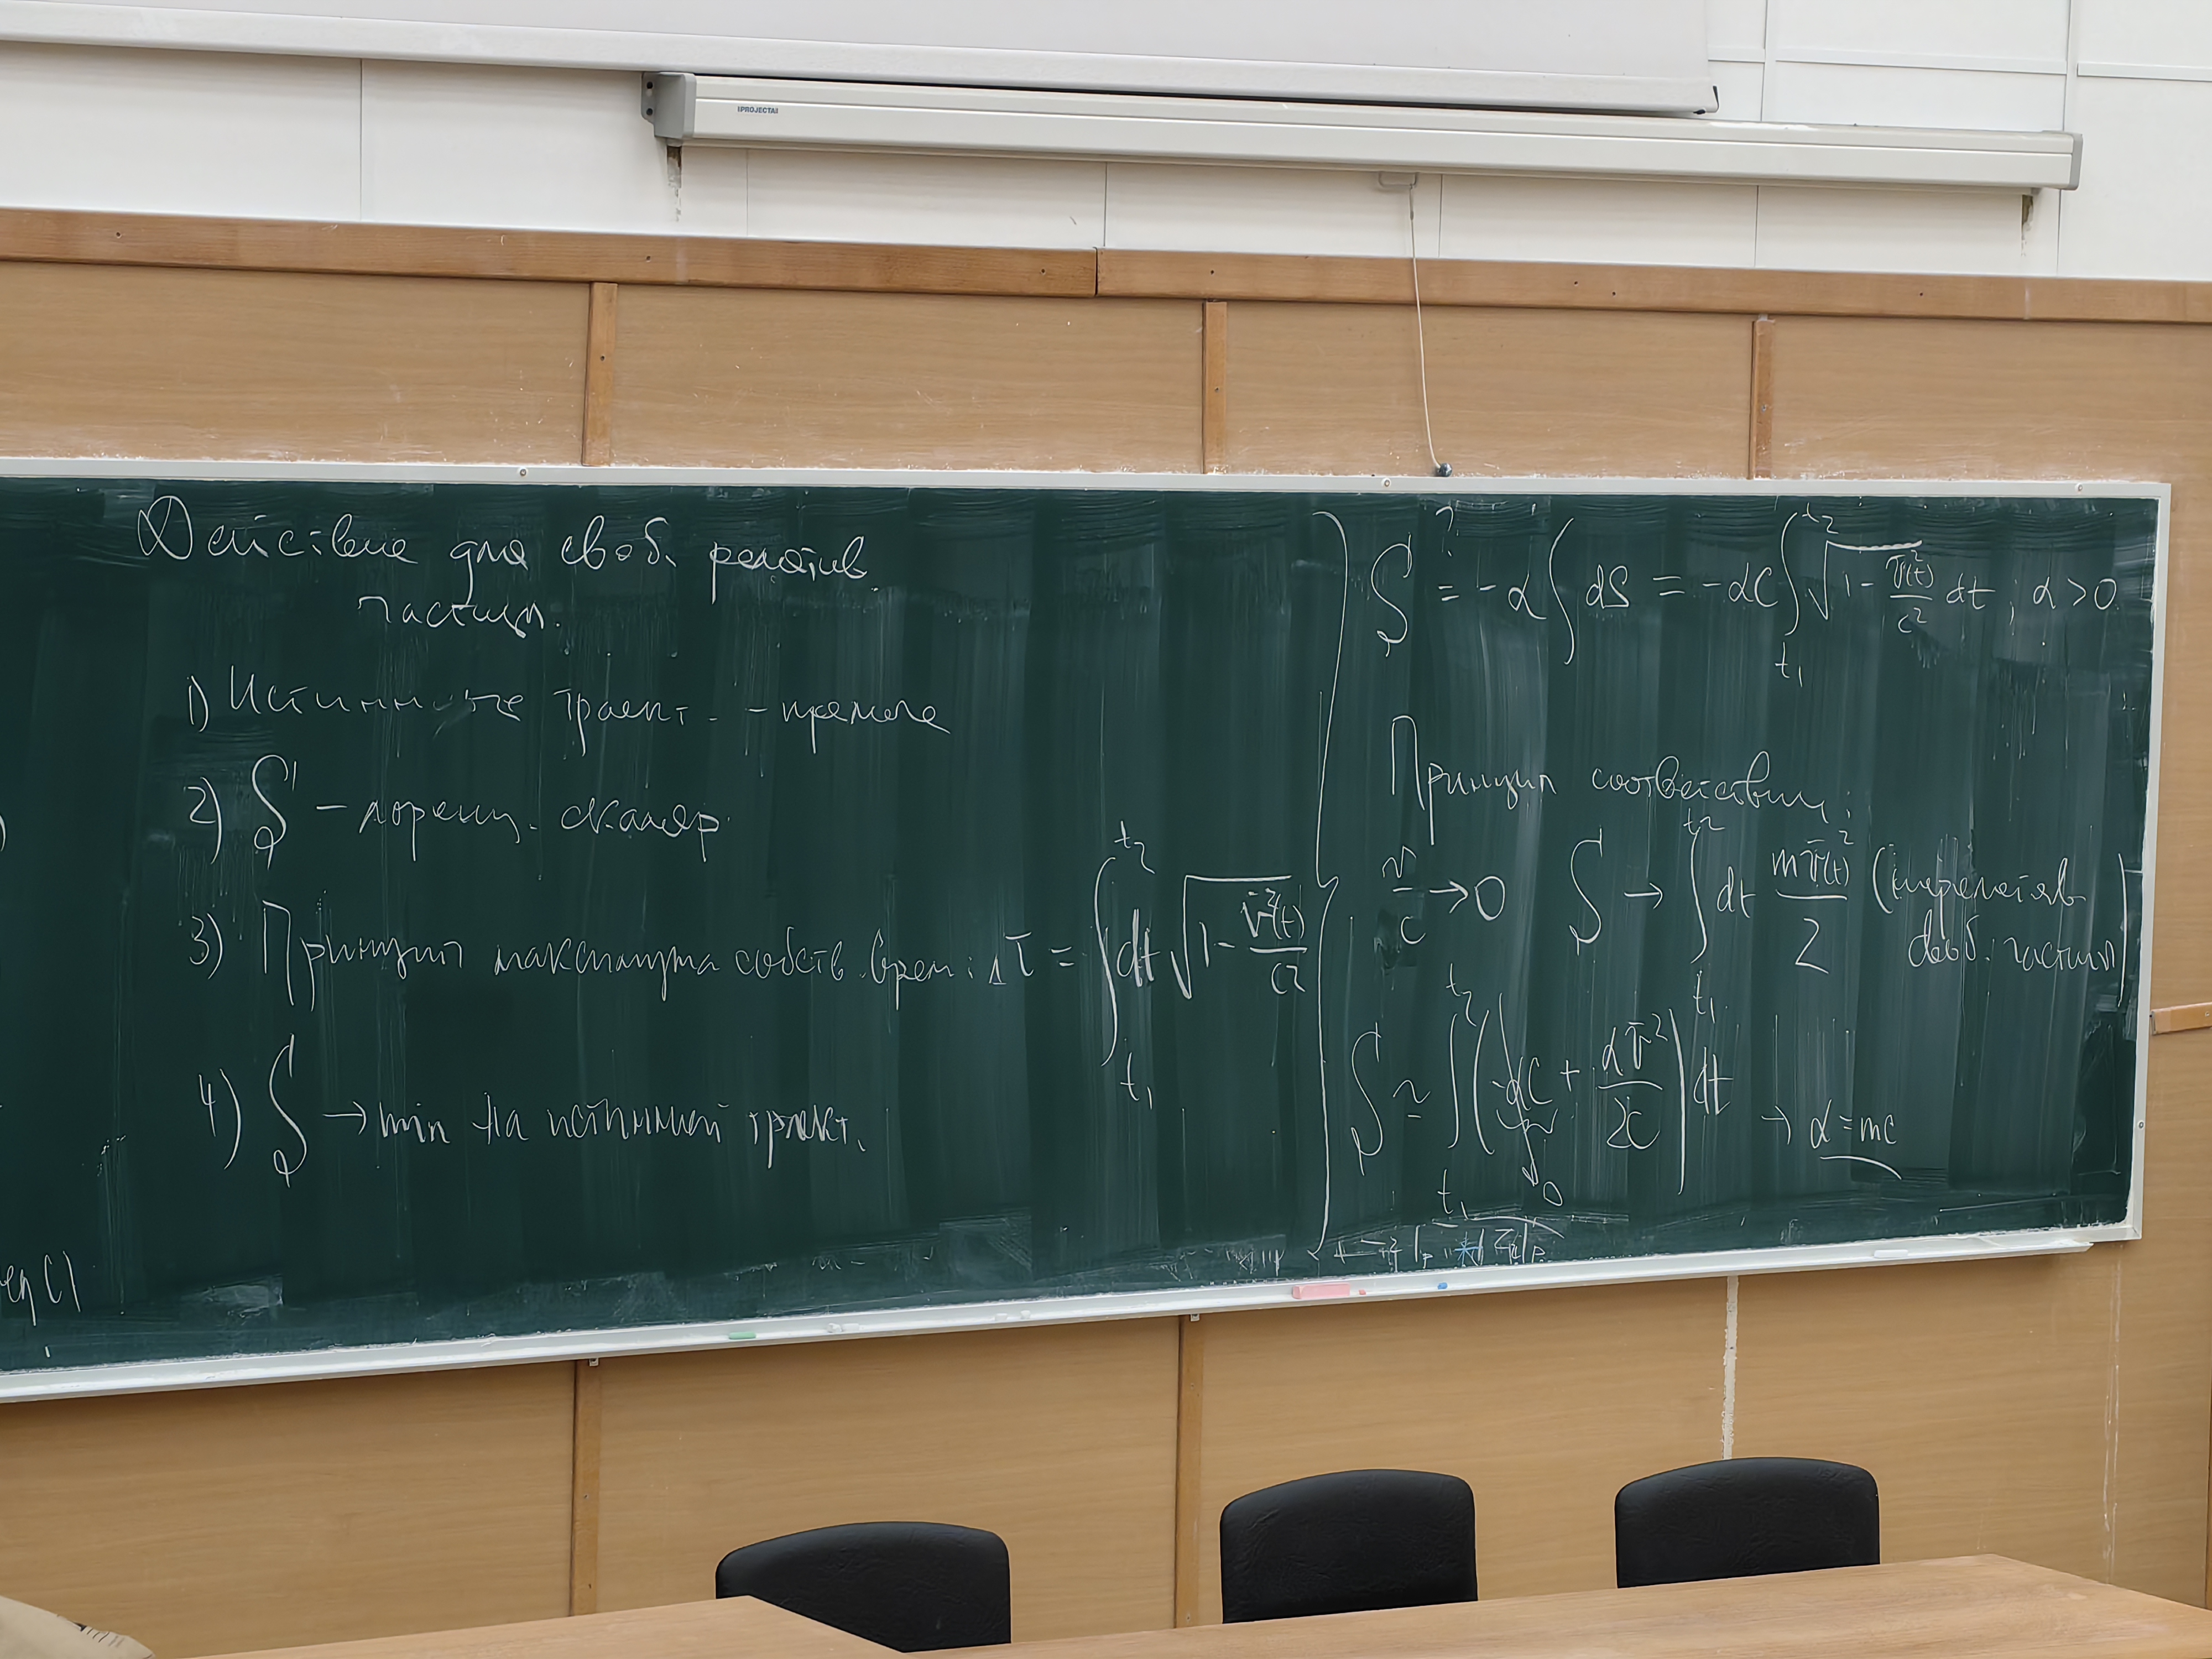 PROJECTA
Действие для своб. релятив.
частицы.
1) Истинные траект. - прямые
2) S - лоренц. скаляр.
3) Принцип максимума собств. врем: Δτ = ∫_{t₁}^{t₂} dt √(1 - v̄²(t)/c²)
4) S → min на истинной траект.
S ?= -α ∫ dS = -αc ∫_{t₁}^{t₂} √(1 - v̄²(t)/c²) dt ; α > 0
Принцип соответствия:
v/c → 0 S → ∫_{t₁}^{t₂} dt mv̄(t)²/2 (нерелятив
своб. частица)
S ≃ ∫_{t₁}^{t₂} (-αc + αv̄²/2c) dt → α = mc
0